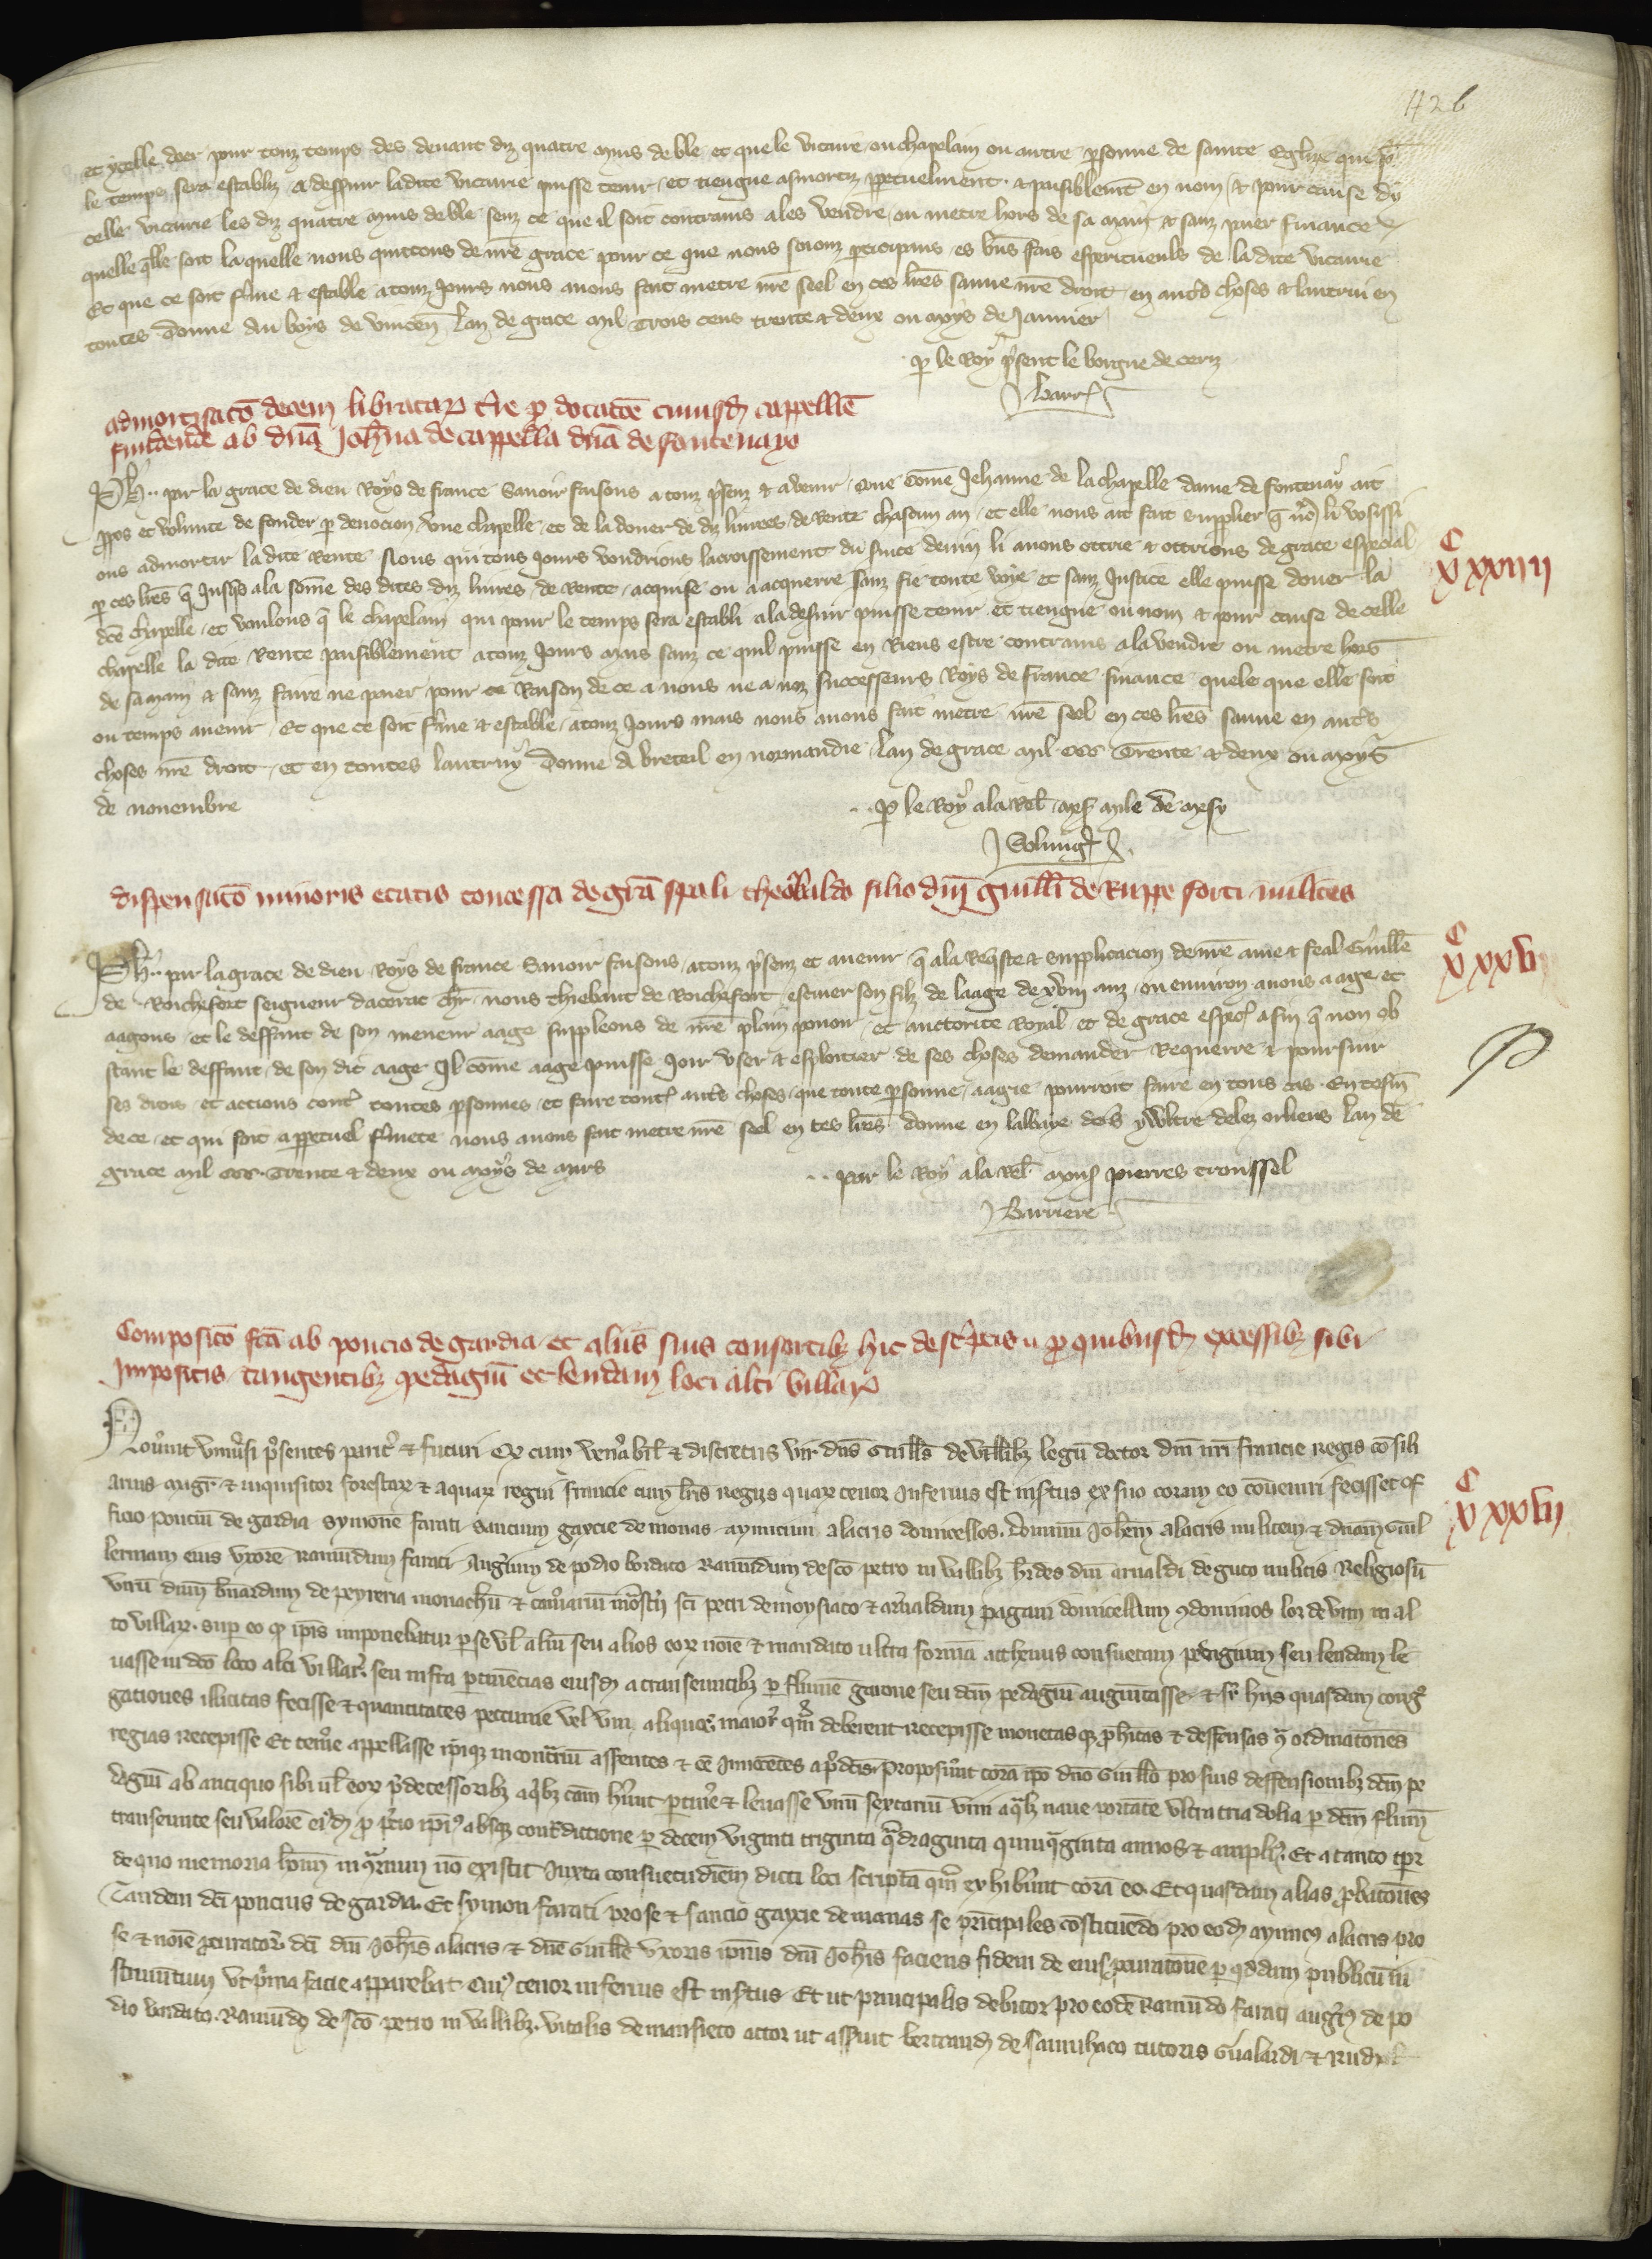 426
et ycelle doer pour touz temps des deuant diz quatre muis de ble et que le vicaire ou chapelain ou autre psonne de sainte Eglize qui po
le temps sera establiz a desseruir ladite vicairie puisse tenir et tiengue asmortiz ppetuelment et paisiblemt en nom & pour cause dy
celle vicairie les diz quatre muis de ble senz ce que il soit contrains a les vendre ou metre hors de sa main & sanz paier finance
quelle qlle soit laquelle nous quittons de nre grace pour ce que nous soions pticipans es bns fais esperituenls de la dite vicairie
Et que ce soit fme & estable a touz Jours nous auons fait metre nre seel en ces lres sauue nre droit en autres choses & lautrui en
toutes Donne au boys de vincen Lan de grace mil Trois cens trente & deux ou moys de Januier
p le Roy psent le borgne de ceriz
Barr
admortisaco decem libratar tre p dotacoe cuiusd cappelle
fundende ab dna Johna de cappella dna de fontenayo
Ph par la grace de dieu Roys de france Sauoir faisons a touz psenz & auenir Que come Jehanne de la chapelle dame de fontenay ait
ppos et volunte de fonder p deuocion vne chapelle et de la doner de diz liurees de Rente chascun an et elle nous ait fait supplier q no li vosissi
ons admortir la dite Rente Nous qui tous Jours voudrions lacroissement du seruice deuin li auons ottrie & ottrions de grace especial
p ces lres q Jusqs a la some des dites diz liures de Rente acquise ou a acquerre sanz fie toute voye et sanz Justice elle puisse doner la
dce chapelle et voulons q le chapelain qui pour le temps sera establi a la desseruir puisse tenir et tiengne ou nom & pour cause de celle
chapelle la dite Rente paisiblement a touz Jours mais sanz ce quil puisse en Riens estre contrains a la vendre ou metre hors
de sa main & sanz faire ne paier pour ce Raison de ce a nous ne a noz successeurs Roys de france finance quele que elle soit
ou temps auenir Et que ce soit fme & estable a touz Jours mais nous auons fait metre nre seel en ces lres sauue en autres
choses nre droit et en toutes lautruy Donne A breteil en normandie lan de grace mil ccc Trente & deux ou moys
de nouembre
P le Roy a la Rel mile de
C
XXXIIII
dispensaco minoris etatis concessa de gra spali theobaldo filio dni guilli de Ruppe forti militis
Ph par la grace de dieu Roys de france Sauoir faisons a touz psenz et auenir q a la Reqste & supplicacion de nre ame & feal Guille
de Rochefort seigneur dacerac chr nous thiebaut de Rochefort escuier son filz de laage de xviii anz ou enuiron auons aage et
aagons et le deffaut de son meneur aage suppleons de nre plain pouoir et auctorite Royal et de grace espec afin q non ob
stant le deffaut de son dit aage Il come aage puisse Joir vser & esploitier de ses choses demander Requerre & poursuir
ses droiz et actions cont toutes psonnes et faire tout autres choses que toute psonne aagie pourroit faire en tous cas En tesm
de ce et qui soit a ppetuel fmete nous auons fait metre nre seel en ces lres donne en labbaye delez orliens lan de
grace mil ccc Trente & deux ou moys de mars
par le Roy a la Rel pierres troussel
Barriere
C
XXXV
Composico fca ab poncio de gardia et aliis suis consortibz hic descriptis p quibusd excessibz sibi
Impositis tangentibz pedagiu et lendam loci alti villar
Nouint vniusi psentes parit & futuri Qx cum venabil & discretus vir dns Guills de villibz legu doctor dni nri francie regis cosili
arius magr & inquisitor forestar & aquar regni francie cum lris regiis quar tenor Inferius est instus ex suo coram eo coueniri fecisset of
ficio ponciu de gardia symone farati sancium gaycie de monas aymicum alacris domicellos. Dominu Johem alacris militem & dnam Guil
lermam eius vxore Ramundum farati Augerium de podio bordato Ramundum de sco petro in vallibz hdes dni arnaldi de guto militis Religiosu
viru dnm bnardum de peyreria monachu & camariu mostij sci petri de moysiaco & arnaldum pagani domicellum condominos loci de vim in al
to villar sup eo qp ipis imponebatur p se vl aliu seu alios eor noie & mandato ultra forma acthenus consuetam pedagium seu lendam le
uasse in dco loco alti villar seu infra ptinecias eiusd a transeuntibz p flumen garone seu dcm pedagiu augmtasse & sr hiis quasdam cong
gationes illicitas fecisse & quantitates peccunie vel vini aliquot maior qm deberent recepisse monetasqz phitas & deffensas p ordinatones
regias recepisse Et temere appellasse ipiqz in contrariu asserentes & ee Innocetes a pdcis Proposuerunt cora ipo dno Guillo pro suis deffensionibz dcm pe
dagiu ab antiquo sibi ul eor predecessoribz a qbz cam hnt ptinere & leuasse vnu sextariu vini a qlz naue portante vltra tria dolia p dcm flum
transeunte seu valore eiusd pro pcio ipi absqz contradictione p decem viginti triginta qdraginta quinqginta annos & ampli Et a tanto tpr
de quo memoria hoim in contrarium no existit Juxta consuetudiem dicti loci scripta qm exhibuerunt cora eo. Et quasdam alias pbatones
Tandem dci poncius de gardia. Et symon farati pro se & sancio gaycie de manas se principales costituedo pro eod aymicus alacris pro
se & noie pcurator dci dni Johis alacris & dne Guille vxoris ipius dni Johis faciens fidem de eius pcuratone p qddam publicu in
strumtum vt prima facie apparebat Cui tenor inferius est instus Et ut principalis debitor pro eode Ramudo farati auger de po
dio bordato. Ramud de sco petro in vallibz. vitalis de mansieto actor ut asseruit bertrand de saunhaco tutoris Gualardi & Rud
C
XXXVI